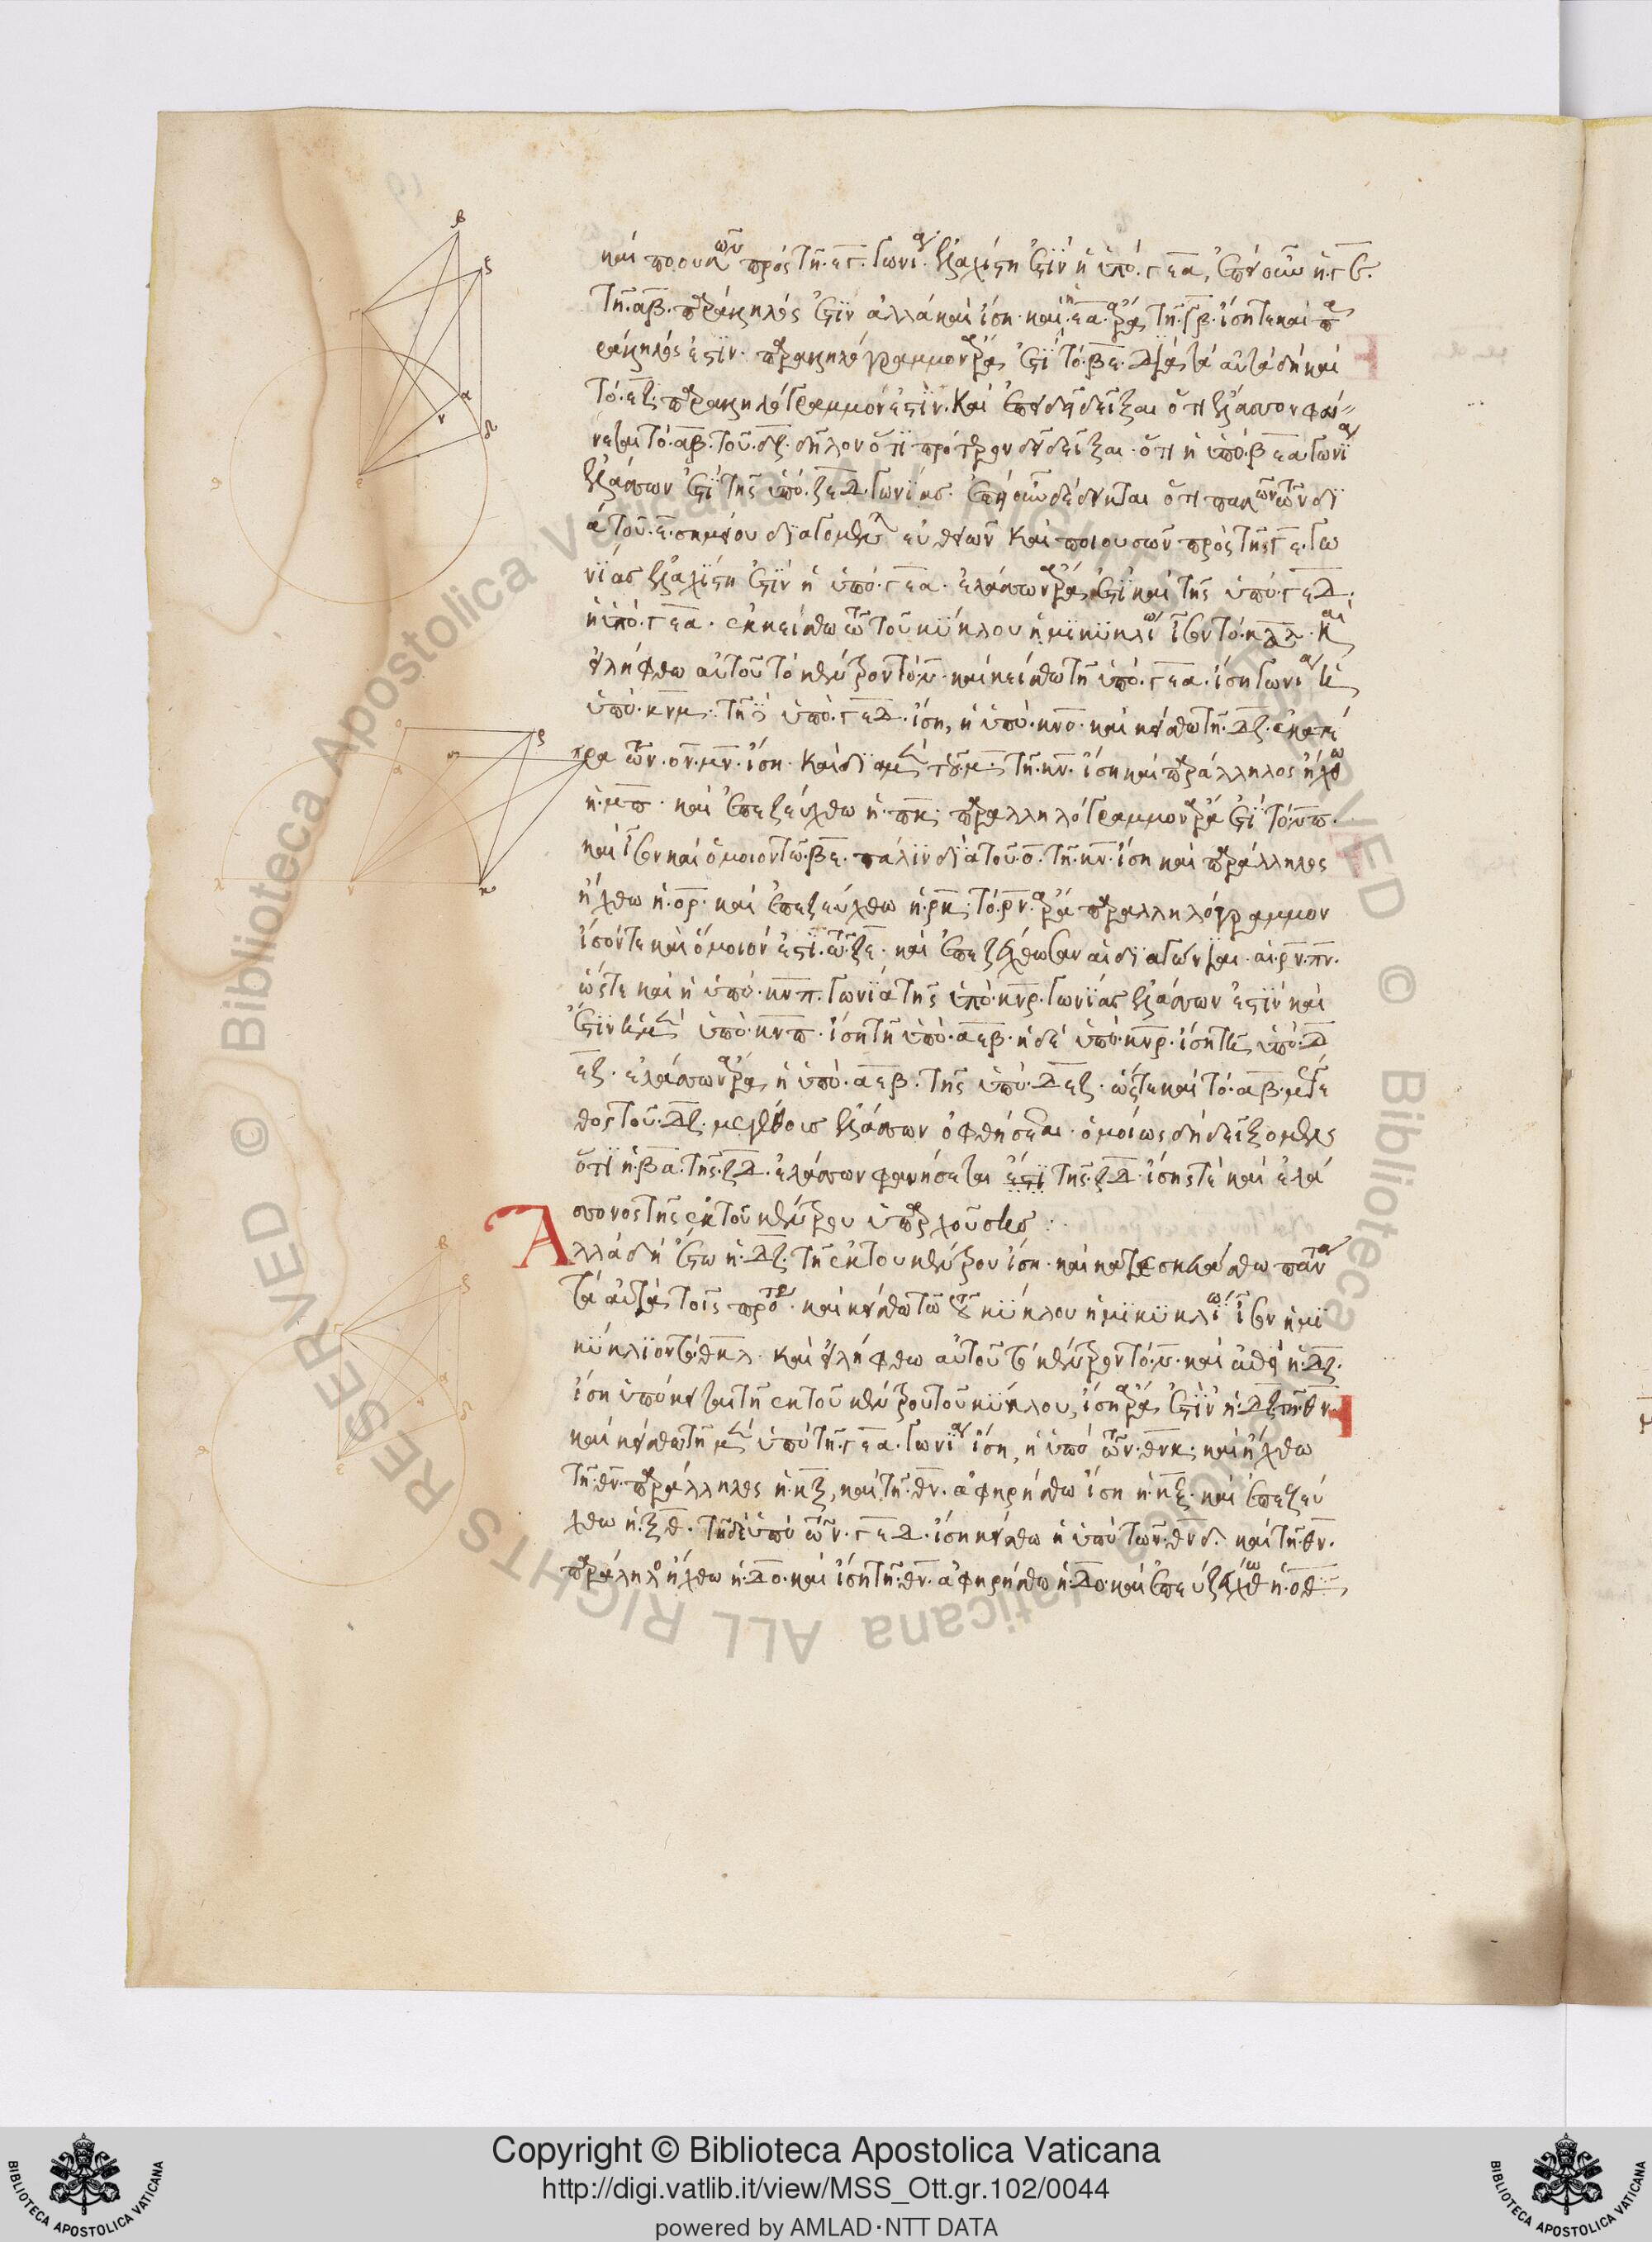 καὶ ποιουσῶν πρὸς τῇ ·εγ· γωνίαν ἐλαχίστη ἐστὶν ἡ ὑπὸ ·γεα, ἐπεὶ οὖν ἡ ·γβ·
τῇ ·αβ· παράλληλός ἐστιν ἀλλὰ καὶ ἴση · καὶ ἡ ·εα· ἄρα τῇ ·γβ· ἴση τε καὶ πα
ράλληλός ἐστιν · παραλληλόγραμμον ἄρα ἐστὶ τὸ ·βε· διὰ τὰ αὐτὰ δὴ καὶ
τὸ ·εζ· παραλληλόγραμμόν ἐστιν · καὶ ἐπεὶ δεῖ δεῖξαι ὅτι ἔλασσον φαί
νεται τὸ ·αβ· τοῦ ·δζ· δῆλον ὅτι πρότερον δεῖ δεῖξαι · ὅτι ἡ ὑπὸ ·βεα γωνία
ἐλάσσων ἐστὶ τῆς ὑπὸ ·ζεδ· γωνίας · ἐπεὶ οὖν δέδεικται ὅτι πασῶν τῶν δι
ὰ τοῦ ·ε· σημείου διαγομένων εὐθειῶν καὶ ποιουσῶν πρὸς τῇ ·γε· γω
νίας ἐλαχίστη ἐστὶν ἡ ὑπὸ ·γεα· ἐλάσσων ἄρα ἐστὶ καὶ τῆς ὑπὸ ·γεδ·
ἡ ὑπὸ ·γεα· ἐκκείσθω τῷ τοῦ κύκλου ἡμικυκλίῳ ἴσον τὸ ·κλ · καὶ
εἰλήφθω αὐτοῦ τὸ κέντρον τὸ ·ν· καὶ κείσθω τῇ ὑπὸ ·γεα· ἴση γωνία ἡ
ὑπὸ ·κνμ· τῇ δὲ ὑπὸ ·γεδ· ἴση, ἡ ὑπὸ ·κνο· καὶ κείσθω τῇ ·δζ· ἑκατέ
ρα τῶν ·ον·μν· ἴση · καὶ διὰ μὲν τοῦ ·μ· τῇ ·κν· ἴση καὶ παράλληλος ἤχθω
ἡ ·μπ· καὶ ἐπεζεύχθω ἡ ·πκ· παραλληλόγραμμον ἄρα ἐστὶ τὸ ·νπ·
καὶ ἴσον καὶ ὅμοιον τῷ ·βε· πάλιν διὰ τοῦ ·ο· τῇ ·κν· ἴση καὶ παράλληλος
ἤχθω ἡ ·ορ· καὶ ἐπεζεύχθω ἡ ·ρκ· τὸ ·ρν· ἄρα παραλληλόγραμμον
ἴσόν τε καὶ ὅμοιόν ἐστι τῷ ·ζε· καὶ ἐπεζεύχθωσαν αἱ διαγώνιαι · αἱ ·ρν·πν·
ὥστε καὶ ἡ ὑπὸ ·κνπ· γωνία τῆς ὑπὸ ·κνρ· γωνίας ἐλάσσων ἐστίν καὶ
ἐστὶν ἡ μὲν ὑπὸ ·κνπ· ἴση τῇ ὑπὸ ·αεβ· ἡ δὲ ὑπὸ ·κνρ· ἴση τῇ ὑπὸ ·δ
εζ· ἐλάσσων ἄρα ἡ ὑπὸ ·αεβ· τῆς ὑπὸ ·δεζ· ὥστε καὶ τὸ ·αβ· μέγε
θος τοῦ ·δζ· μεγέθους ἐλάσσων ὀφθήσεται · ὁμοίως δὴ δείξομεν
ὅτι ἡ ·βα· τῆς ·ζδ· ἐλάσσων φανήσεται ἐστὶ τῆς ·ζδ· ἴσης τε καὶ ἐλά
σσονος τῆς ἐκ τοῦ κέντρου ὑπαρχούσης :·
Ἀλλὰ δὴ ἔστω ἡ ·δζ· τῇ ἐκ τοῦ κέντρου ἴση · καὶ κατεσκευάσθω πάντα
τὰ αὐτὰ τοῖς πρότερον · καὶ κείσθω τῷ τοῦ κύκλου ἡμικυκλίῳ ἴσον ἡμι
κύκλιον τὸ ·θκλ· καὶ εἰλήφθω αὐτοῦ τὸ κέντρον τὸ ·ν· καὶ ἐπεὶ ἡ ·δζ·
ἴση ὑπόκειται τῇ ἐκ τοῦ κέντρου τοῦ κύκλου, ἴση ἄρα ἐστὶν ἡ ·δζ τῇ ·θν·
καὶ κείσθω τῇ μὲν ὑπὸ τῇ ·γεα· γωνίᾳ ἴση, ἡ ὑπὸ τῶν ·θνκ· καὶ ἤχθω
τῇ ·θν· παράλληλος ἡ ·κξ, καὶ τῇ ·θν· ἀφῃρήσθω ἴση ἡ ·κξ· καὶ ἐπεζεύ
χθω ἡ ·ξθ· τῇ δὲ ὑπὸ τῶν ·γεδ· ἴση κείσθω ἡ ὑπὸ τῶν ·θνδ· καὶ τῇ ·θν·
παράλληλος ἤχθω ἡ ·δο· καὶ ἴση τῇ ·θν· ἀφῃρήσθω ἡ ·δο· καὶ ἐπεζεύχθω ἡ ·οθ
Copyright © Biblioteca Apostolica Vaticana
http://digi.vatlib.it/view/MSS_Ott.gr.102/0044
powered by AMLAD·NTT DATA